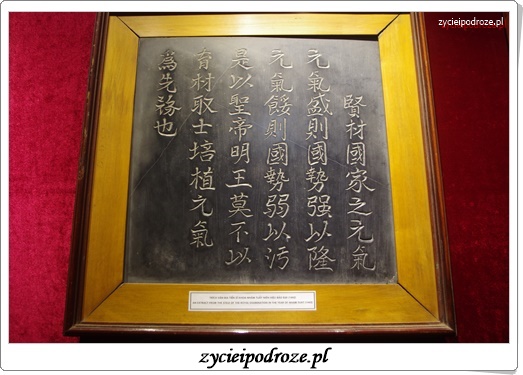 zycieipodroze.pl
賢材國家之元氣
元氣盛則國勢强以隆
元氣餒則國勢弱以汚
是以聖帝明王莫不以
育材取士培植元氣
爲先務也
AN EXTRACT FROM THE STELE OF THE ROYAL EXAMINATION IN THE YEAR OF
zycieipodroze.pl